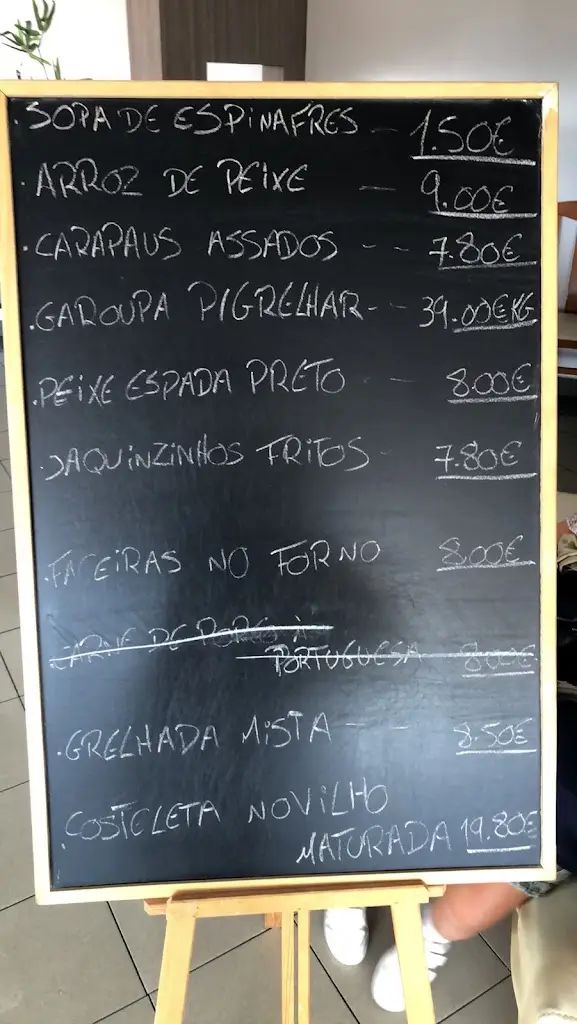 .SOPA DE ESPINAFRES - 1.50€
.ARROZ DE PEIXE - 9.00€
.CARAPAUS ASSADOS - - 7.80€
.GAROUPA P/GRELHAR - - 39.00€KG
.PEIXE ESPADA PRETO - - 8.00€
.JAQUINZINHOS FRITOS - 7.80€
.FACEIRAS NO FORNO 8.00€
.CARNE DE PORCO À
PORTUGUESA 8.00€
.GRELHADA MISTA - - 8.50€
.COSTELETA NOVILHO
MATURADA 19.80€